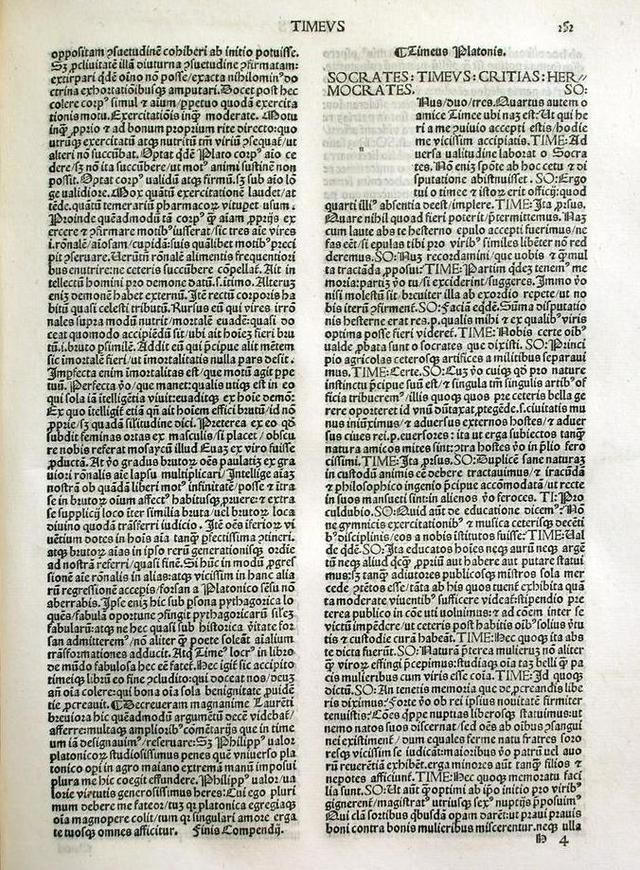 TIMEVS
252
oppositam ꝯsuetudinẽ cohiberi ab initio potuisse.
Sꝫ ꝓcliuitatẽ illã diuturna ꝯsuetudine ꝯfirmatam:
extirpari qdẽ oĩno nõ posse/exacta nihilomin⁹ do
ctrina exhortatiõibusqꝫ amputari. Docet post hec
colere corp⁹ simul & aium/ꝑpetuo quadã exercita
tionis motu. Exercitatiõis inqꝫ moderate. Motu
inqꝫ ꝓprio & ad bonum proprium rite directo: quo
utrũqꝫ exercitatũ atqꝫ nutritũ tñ viriũ ꝯsequat̃/ut
alteri nõ succũbat. Optat qdẽ Plato corp⁹ aio ce
dere/sꝫ nõ ita succũbere/ut mot⁹ animi sustinẽ non
possit. Optat corp⁹ validũ atqꝫ firmũ. Iꝫ sub aio lõ
ge validiore. Mox quãtũ exercitationẽ laudet/at
tẽde. quãtũ temerariũ pharmacoꝝ vitupet usum.
Proinde quẽadmodũ tã corp⁹ qꝫ aiam ꝓprijs ex
ercere & ꝯfirmare motib⁹ iusserat/sic tres aie vires
i. rõnalẽ/aiosam/cupidã: suis qualibet motib⁹ preci
pit ꝯseruare. Uerũtñ rõnalẽ alimentis frequentiori
bus enutrire: ne ceteris succũbere cõpellat̃. Ait in
tellectũ homini pro demone datũ. s. itimo. Alterus
eniꝫ demonẽ habet externũ. Itẽ rectũ corporis ha
bitũ quasi celesti tributũ. Rursus eũ qui vires irrõ
nales supra modũ nutrit/mortalẽ euadẽ: quasi do
ceat quomodo accipiẽdũ sit/ubi ait hoiẽs fieri bru
tũ. i. bruto ꝑsimilẽ. Addit eũ qui ꝓcipue alit mẽtem
sic imortalẽ fieri/ut imortalitatis nulla pars desit.
Imperfecta enim imortalitas est/que motũ agit ꝑpe
tuũ. Perfecta ꝟo/que manet: qualis utiqꝫ est in eo
qui sola iã itelligẽtia viuit: euaditqꝫ ex hoie demõ:
Ex quo itelligit̃ etiã qñ ait hoiem effici brutũ/id nõ
ꝓprie/sꝫ quadã silitudine dici. Preterea ex eo qd̃
subdit feminas ortas ex masculis/si placet/obscu
re nobis referat mosaycũ illud Euaꝫ ex viro fuisse
ꝓductã. At ꝟo gradus brutoꝝ oẽs paulatĩ ex gra
uiori rõnalis aie lapsu multiplicari/Intellige aiaꝫ
nostrã ob quãdã liberi mot⁹ infinitatẽ/posse & itra
se in brutoꝝ oium affect⁹ habitusqꝫ ꝓruere: & extra
se supplicij loco iter similia bruta/uel brutoꝝ loca
diuino quodã trãsferri iudicio. Itẽ oẽs iferioꝝ vi
uẽtium dotes in hois aia tanqꝫ ꝑfectissima ꝯtineri.
atqꝫ brutoꝝ aias in ipso rerũ generationisqꝫ ordie
ad nostrã referri/quasi finẽ. Si hũc in modũ ꝓgres
sionẽ aie rõnalis in alias: atqꝫ vicissim in hanc alia
rũ regressionẽ accepis/forsan a Platonico sẽsu nõ
aberrabis. Ipse eniꝫ hic sub ꝑsona pythagorica lo
quẽs/fabula oportune ꝯfingit pythagoricaꝫ siles
fabularũ: atqꝫ ne hec quasi sub historica vitate for
san admitterem⁹/nõ aliter qꝫ poete soleãt aialium
trãsformationes adducit. Atqꝫ Time⁹ locr⁹ in libro
de mũdo fabulosa hec eẽ fatet̃. Hec igit̃ sic accipito
timeiqꝫ librũ eo fine ꝯcludito: qui doceat nos/deuꝫ
an oia colere: qui bona oia sola benignitate ꝓuidẽ
tie ꝓcreauit. ¶Decreueram magnanime Laurẽti
breuiora hic quẽadmodũ argumẽtũ decẽ videbat̃/
afferre: multaqꝫ ampliorib⁹ cõmẽtarijs que in time
um iã designauim⁹/reseruare: Sꝫ Philipp⁹ valor
platonicoꝝ studiosissimus penes quẽ vniuerso pla
tonico opi in agro maiano extrema manũ imposui
plura me hic coegit effundere. Philipp⁹ valor/va
lorie virtutis generosissimus heres: Cui ego pluri
mum debere me fateor/tuꝫ qꝛ platonica egregiaqꝫ
oia magnopere colit/tum qꝛ singulari amore erga
te tuosqꝫ omnes afficitur. Finis Compendij.
¶Timeus Platonis.
SOCRATES: TIMEVS: CRITIAS: HER//
MOCRATES. SO:
Nus/duo/tres. Quartus autem o
amice Timee ubi naꝫ est: Ut qui he
ri a me ꝯuiuio accepti estis/hodie
me vicissim accipiatis. TIME: Ad
versa ualitudine laborat o Socra
tes. Nõ eniꝫ spõte ab hoc cetu & di
sputatione abstitisset. SO: Ergo
tui o timee & istoꝝ erit officij: quod
quarti illi⁹ absentia deest/implere. TIME: Ita ꝓrsus.
Quare nihil quoad fieri poterit/ꝑtermittemus. Naꝫ
cum laute abs te hesterno epulo accepti fuerimus/ne
fas eẽt/si epulas tibi pro virib⁹ similes libẽter nõ red
deremus. SO: Nuꝫ recordamini/que uobis & qꝫ mul
ta tractãda ꝓposui: TIME: Partim qdeꝫ tenem⁹ me
moria: partiꝫ ꝟo tu/si exciderint/suggeres. Immo ꝟo
nisi molestũ sit/breuiter illa ab exordio repete/ut no
bis iterũ ꝯfirment. SO: Faciã eqdẽ. Sũma disputatio
nis hesterne erat res. p. qualis mihi & ex qualib⁹ viris
optima posse fieri videret̃. TIME: Nobis certe oib⁹
ualde ꝓbata sunt o socrates que dixisti. SO: Princi
pio agricolas ceterosqꝫ artifices a militibus separaui
mus. TIME: Certe. SO: Cuꝫ ꝟo cuiqꝫ qd̃ pro nature
instinctu ꝑcipue suũ est/& singula tñ singulis artib⁹ of
ficia tribuerem⁹/illis quoqꝫ quos pre ceteris bella ge
rere oporteret id vnũ dũtaxat ꝓtegẽde. s. ciuitatis mu
nus iniũximus/& aduersus externos hostes/& aduer
sus ciues rei. p. euersores: ita ut erga subiectos tanqꝫ
natura amicos mites sint: ꝯtra hostes ꝟo in p̃lio fero
cissimi. TIME: Ita ꝓrsus. SO: Duplicẽ sane naturaꝫ
in custodũ animis eẽ debere tractauimus/& iracũdã
& philosophico ingenio p̃cipue accomodatã/ut recte
in suos mansueti sint: in alienos ꝟo feroces. TI: Pro
culdubio. SO: Quid aũt de educatione dicem⁹: Nõ
ne gymnicis exercitationib⁹ & musica ceterisqꝫ decẽti
b⁹ disciplinis/eos a nobis istitutos fuisse: TIME: Ual
de qdẽ. SO: Ita educatos hoies neqꝫ aurũ neqꝫ argẽ
tũ neqꝫ aliud qcqꝫ ꝓpriũ aut habere aut putare statui
mus: sꝫ tanqꝫ adiutores publicosqꝫ mistros sola mer
cede ꝯtẽtos esse/tãta ab his quos tuent̃ exhibita quã
ta moderate viuentib⁹ sufficere videat̃: stipendio pre
terea publico in cõi uti uoluimus: & ad cõem inter se
victũ impẽdere/ut ceteris post habitis oib⁹ solius ꝟtu
tis & custodie curã habeãt. TIME: Hec quoqꝫ ita abs
te dicta fuerũt. SO: Naturã p̃terea mulierũ nõ aliter
qꝫ viroꝝ effingi p̃cepimus: studiaqꝫ oia taꝫ belli qꝫ pa
cis mulieribus cum viris esse cõia. TIME: Id quoqꝫ
dictũ. SO: An tenetis memoria que de ꝓcreandis libe
ris diximus: Forte ꝟo ob rei ipsius nouitatẽ firmiter
tenuistis: Cões qppe nuptias liberosqꝫ statuimus: ut
nemo natos suos discernat/sed oẽs ab oibus ꝯsangui
nei existiment/dum equales ferme natu fratres soro
resqꝫ vicissim se iudicãt: maioribus ꝟo patrũ uel auo
rũ reuerẽtiã exhibẽt. erga minores aũt tanqꝫ filios &
nepotes afficiunt̃. TIME: Hec quoqꝫ memoratu faci
lia sunt. SO: Ut aũt qꝫoptimi ab ip̃o initio pro virib⁹
gignerent̃/magistrat⁹ utriusqꝫ sex⁹ nuptijs p̃posuim⁹
Qui clã sortibus qbusdã opam darẽt: ut praui prauis
boni contra bonis mulieribus miscerentur. neqꝫ ulla
H 4